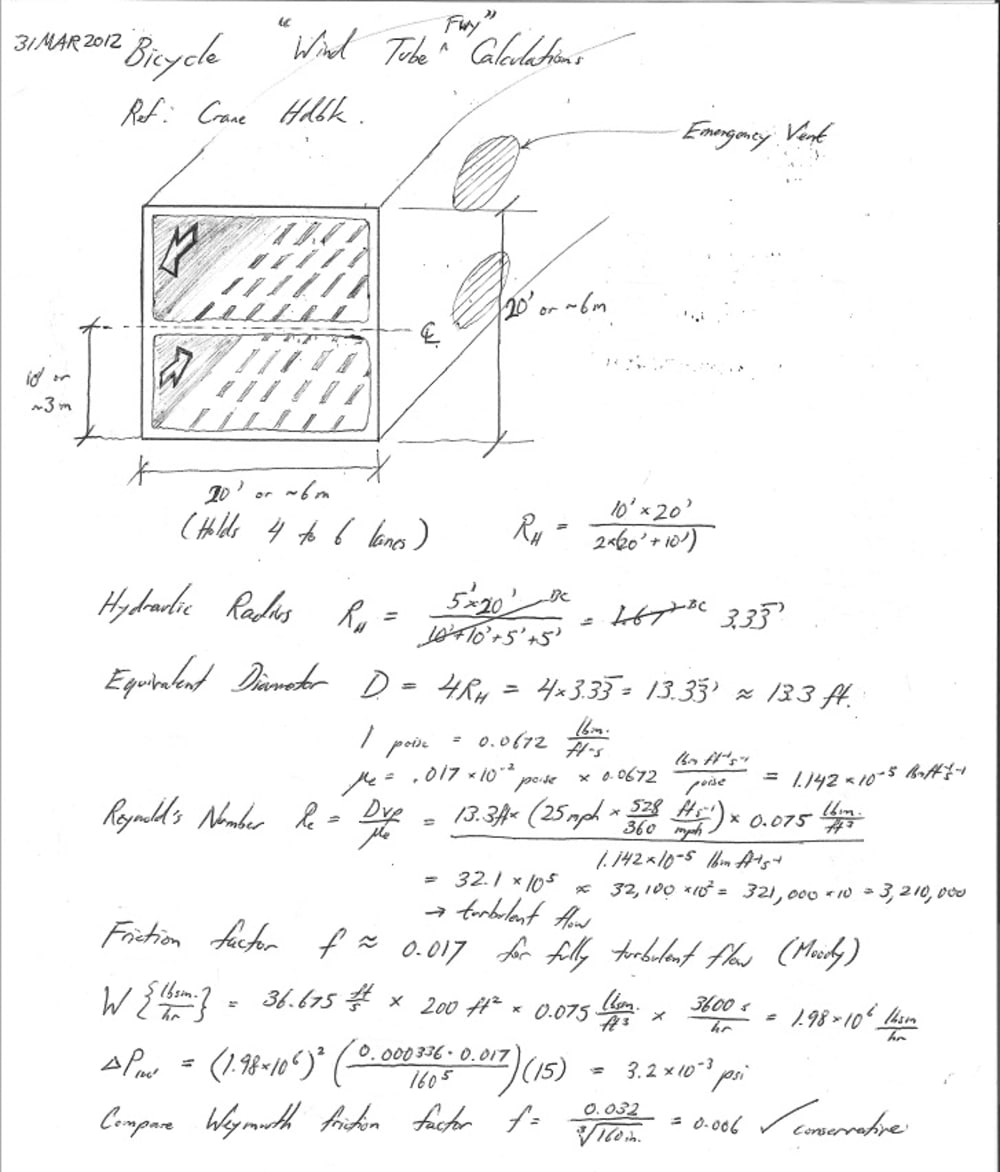 31 MAR 2012 Bicycle "Wind Tube ^ Fwy" Calculations
Ref: Crane Hdbk.
Emergency Vent
20' or ~6m
℄
10' or
~3m
20' or ~6m
(Holds 4 to 6 lanes) R_H = 10' × 20' / 2×(20' + 10')
Hydraulic Radius R_H = 5' × 20' / 10' + 10' + 5' + 5' BC = 1.67' BC 3.33'
Equivalent Diameter D = 4R_H = 4 × 3.33 = 13.33' ≈ 13.3 ft.
1 poise = 0.0672 lbm. / ft-s
μe = .017 × 10⁻² poise × 0.0672 lbm ft⁻¹s⁻¹ / poise = 1.142 × 10⁻⁵ lbm ft⁻¹s⁻¹
Reynold's Number Re = Dvρ / μe = 13.3ft × (25 mph × 528/360 ft s⁻¹/mph) × 0.075 lbm./ft³
1.142 × 10⁻⁵ lbm ft⁻¹s⁻¹
= 32.1 × 10⁵ ∝ 32,100 × 10² = 321,000 × 10 = 3,210,000
→ turbulent flow
Friction factor f ≈ 0.017 for fully turbulent flow (Moody)
W {lbsm./hr} = 36.675 ft/s × 200 ft² × 0.075 lbsm./ft³ × 3600 s/hr = 1.98 × 10⁶ lbsm/hr
= (1.98×10⁶)² (0.000336 · 0.017 / 160⁵)(15) = 3.2 × 10⁻³ psi
Compare Weymouth friction factor f = 0.032 / ∛160 in. = 0.006 ✓ conservative